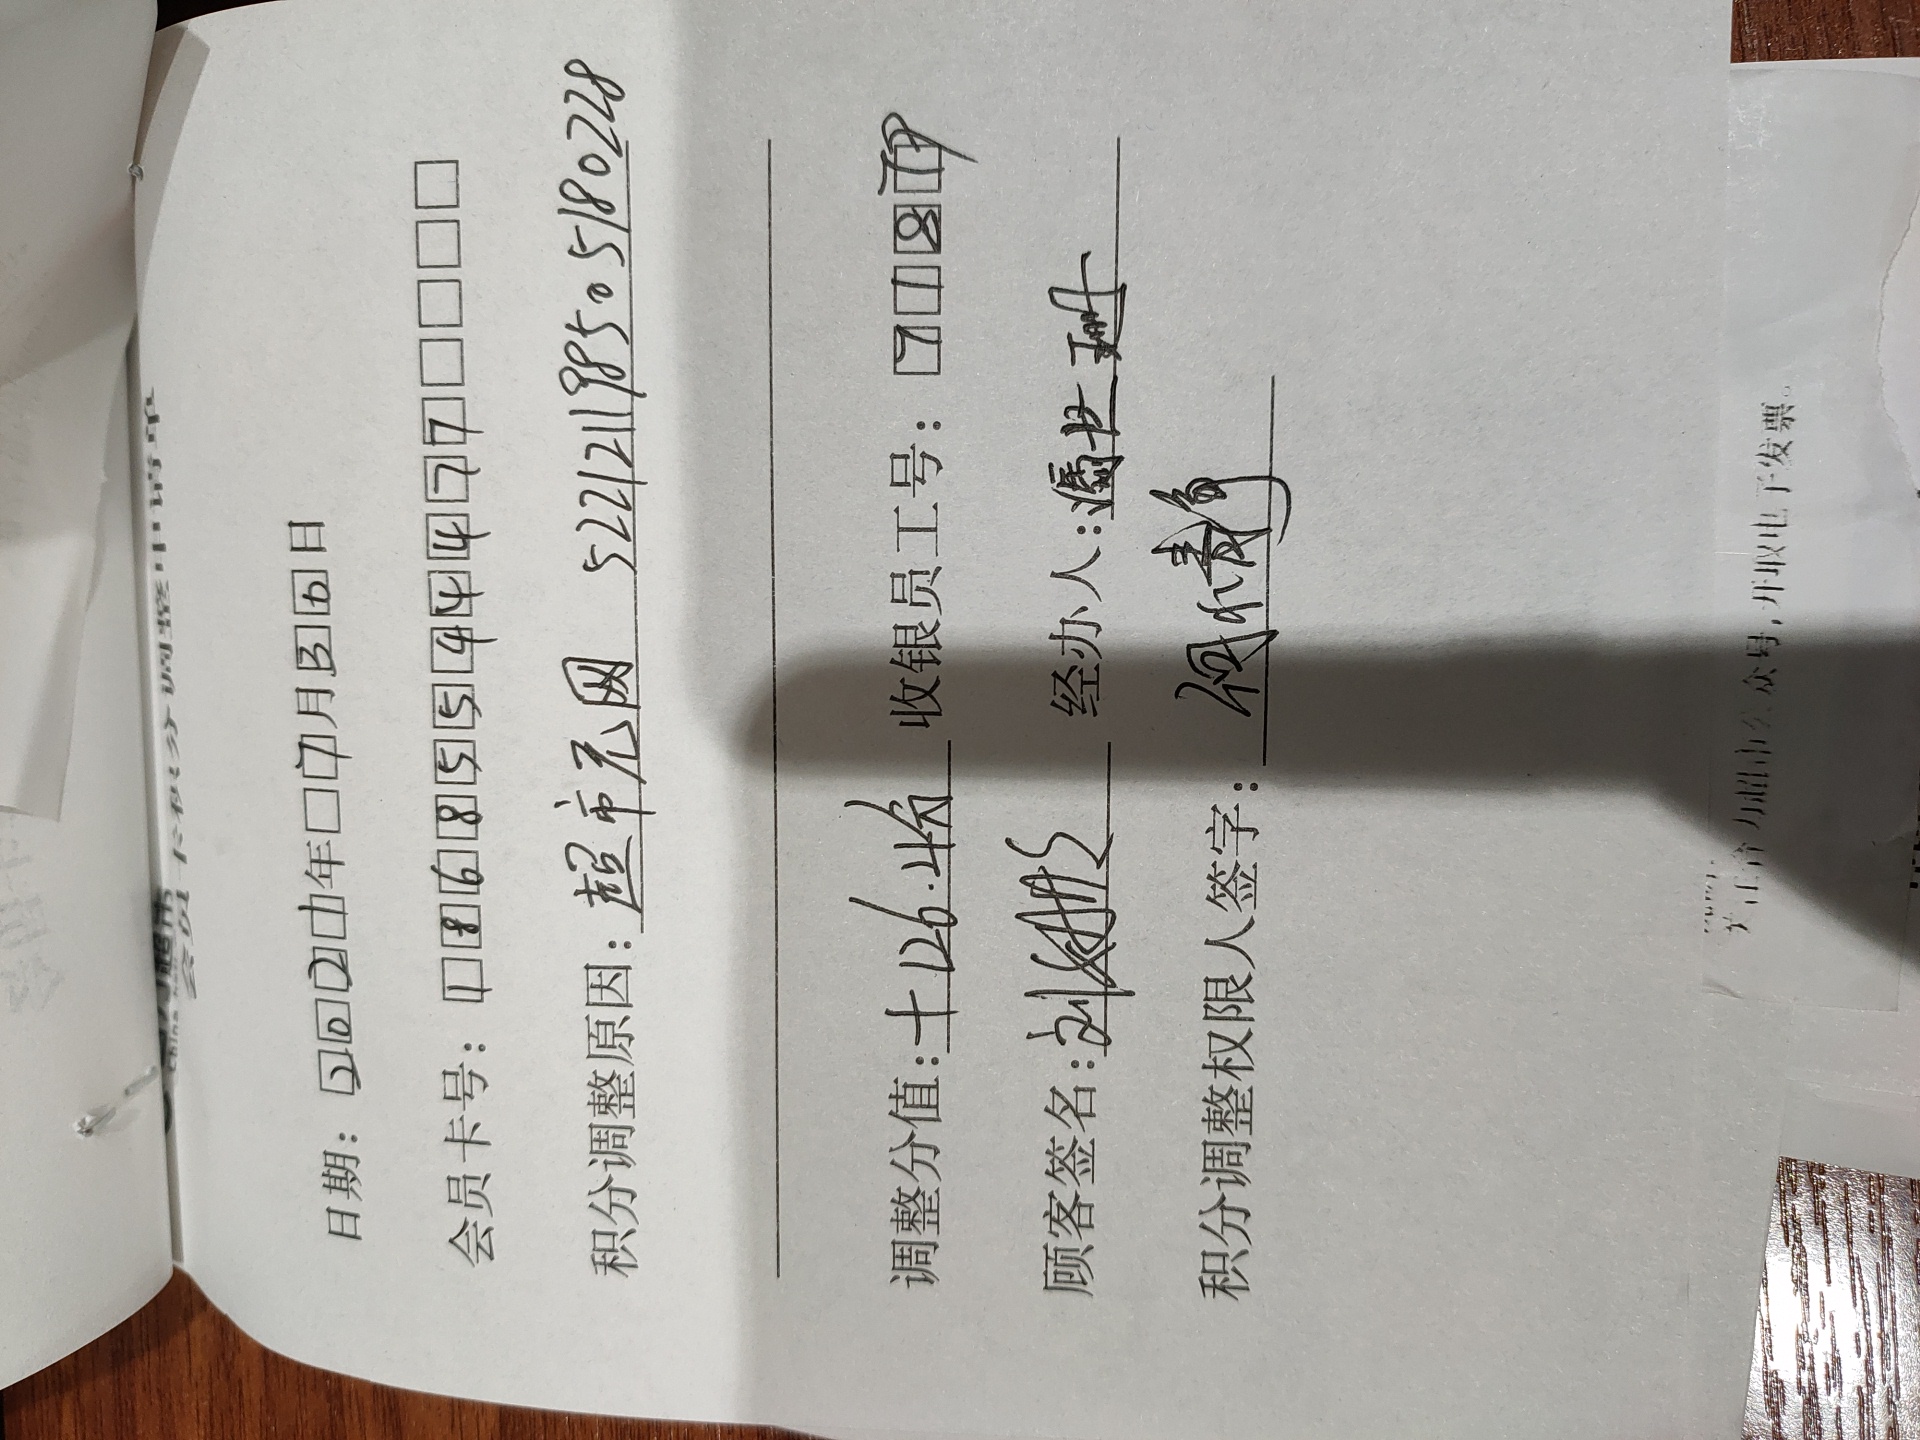 会员卡积分调整申请单
日期：2024年□7月30日
会员卡号：18685544477□□□□
积分调整原因：超市无网 522121198505180228
调整分值：+126.4分 收银员工号：718
顾客签名：刘 经办人：潘世珊
积分调整权限人签字：
关注合力超市公众号，开取电子发票。